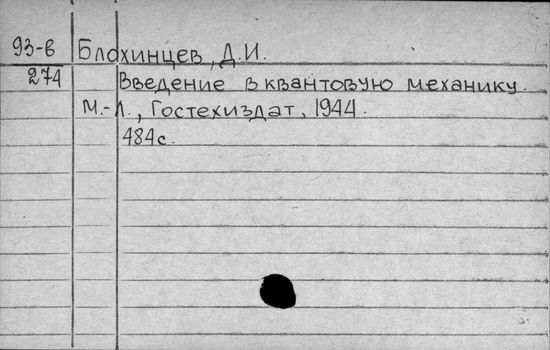 93-в Блохинцев, Д.И.
274 Введение в квантовую механику.
М.-Л., Гостехиздат, 1944.
484с.